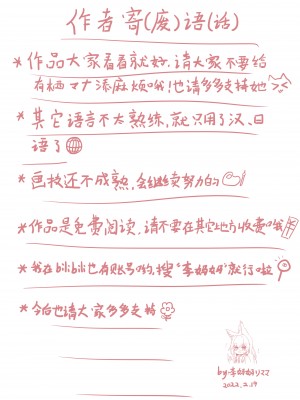 作者寄(废)语(话)
*作品大家看看就好,请大家不要给
有栖マナ添麻烦哦!也请多多支持她
*其它语言不太熟练,就只用了汉、日
语了
*画技还不成熟,会继续努力的
*作品是免费阅读,请不要在其它地方收费哦
*我在bilibili也有账号哟,搜“李妈妈”就行啦
*今后也请大家多多支持
by:李妈妈リママ
2022.2.19